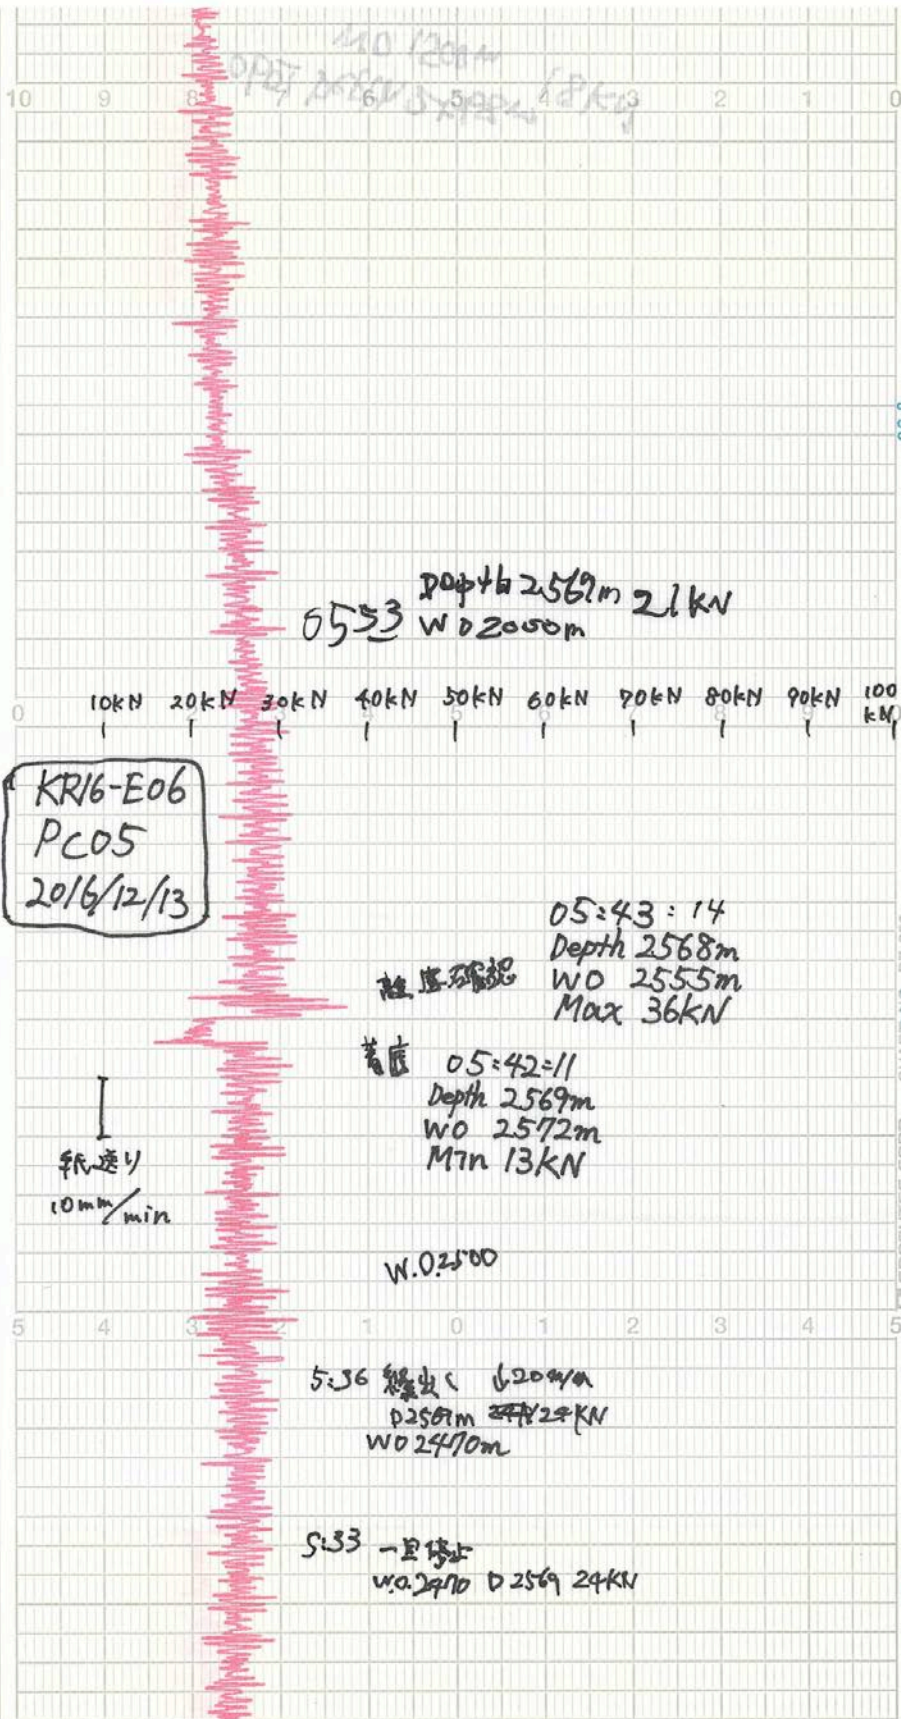 10 9 8 7 6 5 4 3 2 1 0
0553
Depth 2569m 21kN
WO 2000m
10kN 20kN 30kN 40kN 50kN 60kN 70kN 80kN 90kN 100kN
KR16-E06
PC05
2016/12/13
05:43:14
Depth 2568m
離底確認 WO 2555m
Max 36kN
着底 05:42:11
Depth 2569m
WO 2572m
Min 13kN
紙送り
10mm/min
W.O.2500
5 4 3 2 1 0 1 2 3 4 5
5:36 繰出く ↓20m/m
D2569m 24KN
WO 2470m
5:33 一旦停止
W.O.2470 D2569 24KN